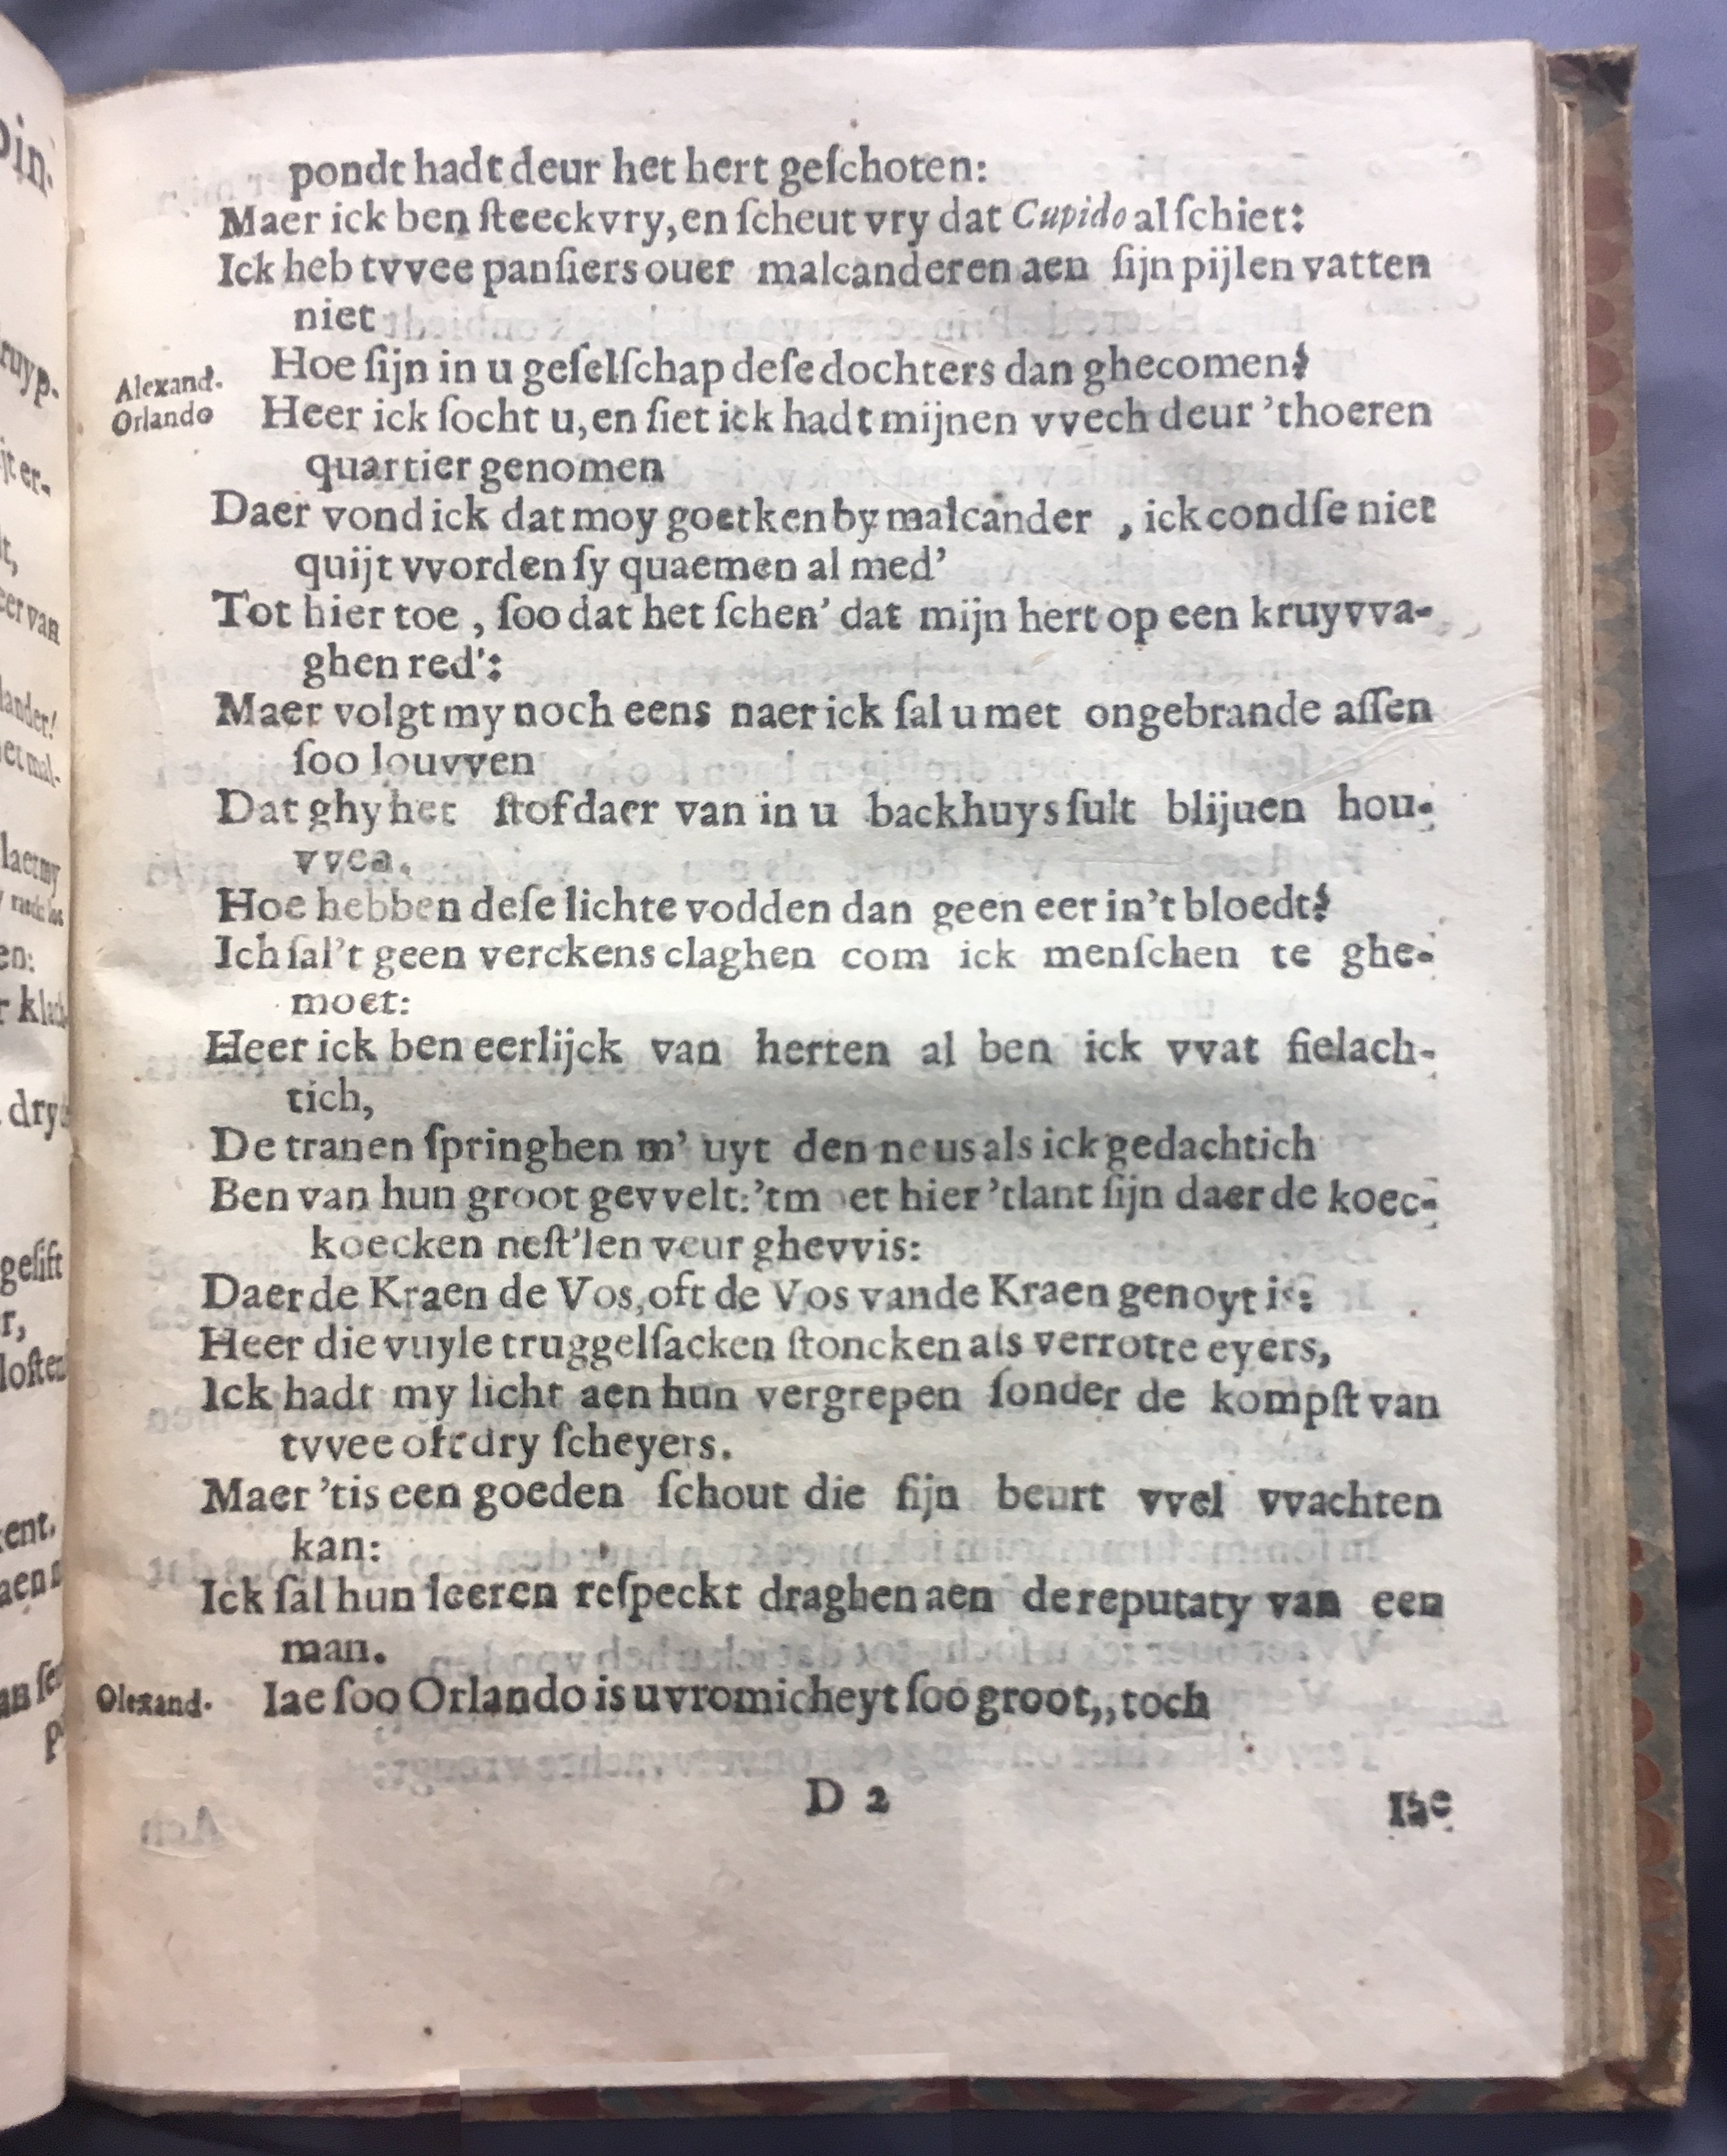 pondt hadt deur het hert geſchoten:
Maer ick ben ſteeckvry, en ſcheut vry dat Cupido al ſchiet:
Ick heb tvvee panſiers ouer malcanderen aen ſijn pijlen vatten
niet
Alexand. Hoe ſijn in u geſelſchap deſe dochters dan ghecomen?
Orlando Heer ick ſocht u, en ſiet ick hadt mijnen vvech deur 'thoeren
quartier genomen
Daer vond ick dat moy goetken by malcander , ick condſe niet
quijt vvorden ſy quaemen al med'
Tot hier toe , ſoo dat het ſchen' dat mijn hert op een kruyvva-
ghen red':
Maer volgt my noch eens naer ick ſal u met ongebrande aſſen
ſoo louvven
Dat ghy het ſtof daer van in u backhuys ſult blijuen hou-
vven.
Hoe hebben deſe lichte vodden dan geen eer in't bloedt?
Ich ſal't geen verckens claghen com ick menſchen te ghe-
moet:
Heer ick ben eerlijck van herten al ben ick vvat fielach-
tich,
De tranen ſpringhen m' uyt den neus als ick gedachtich
Ben van hun groot gevvelt: 'tm et hier 'tlant ſijn daer de koec-
koecken neſt'len veur ghevvis:
Daer de Kraen de Vos, oft de Vos vande Kraen genoyt is:
Heer die vuyle truggelſacken ſtoncken als verrotte eyers,
Ick hadt my licht aen hun vergrepen ſonder de kompſt van
tvvee oft dry ſcheyers.
Maer 'tis een goeden ſchout die ſijn beurt vvel vvachten
kan:
Ick ſal hun leeren reſpeckt draghen aen de reputaty van een
man.
Olexand. Iae ſoo Orlando is u vromicheyt ſoo groot,, toch
D 2
Iae